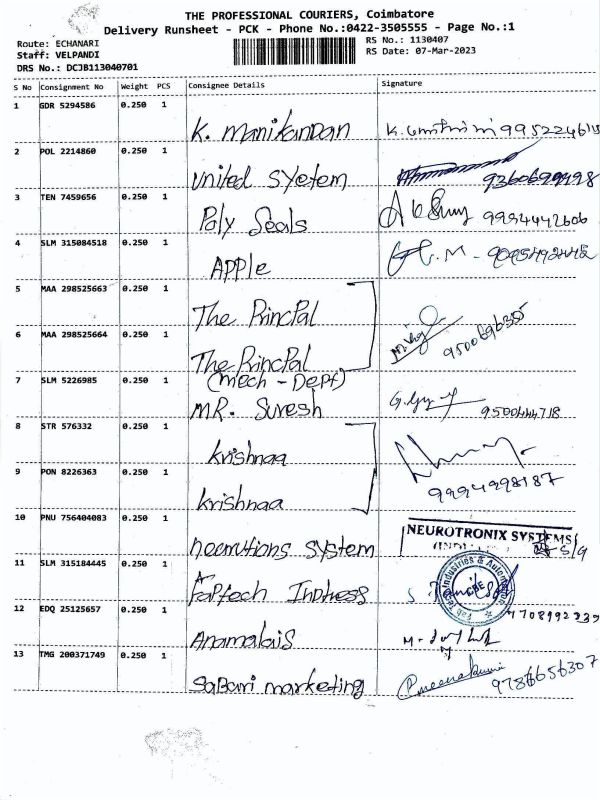 THE PROFESSIONAL COURIERS, Coimbatore
Delivery Runsheet - PCK - Phone No.:0422-3505555 - Page No.:1
Route: ECHANARI
Staff: VELPANDI
DRS No.: DCJB113040701
RS No.: 1130407
RS Date: 07-Mar-2023
S No Consignment No Weight PCS Consignee Details Signature
1 GDR 5294586 0.250 1
K. Manikandan
2 POL 2214860 0.250 1
United Syetem
3 TEN 7459656 0.250 1
Poly Seals 9994442606
4 SLM 315084518 0.250 1
APPle
5 MAA 298525663 0.250 1
The PrincPal
6 MAA 298525664 0.250 1
The PrincPal
(mech - Dept)
7 SLM 5226985 0.250 1
MR. Suresh 9500444718
8 STR 576332 0.250 1
krishnaa
9 PON 8226363 0.250 1
krishnaa 9994998187
10 PNU 756404083 0.250 1
System NEUROTRONIX SYSTEMS
11 SLM 315184445 0.250 1
12 EDQ 25125657 0.250 1
Anamalais
13 TMG 200371749 0.250 1
Sabari marketing 9786656307